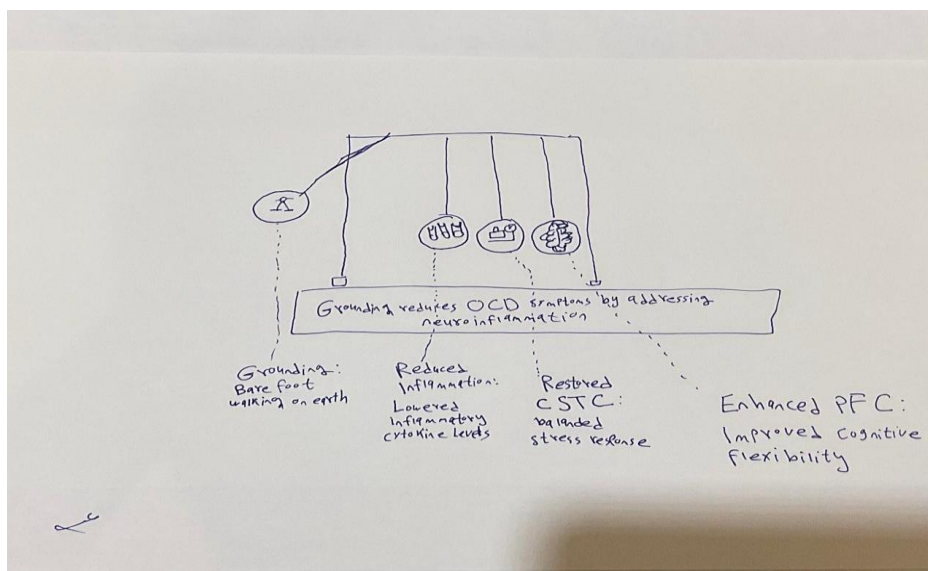 Grounding reduces OCD symptoms by addressing
neuroinflammation
Grounding:
Bare foot
walking on earth
Reduced
Inflammation:
Lowered
Inflammatory
cytokine levels
Restored
CSTC:
balanded
stress response
Enhanced PFC:
Improved Cognitive
flexibility